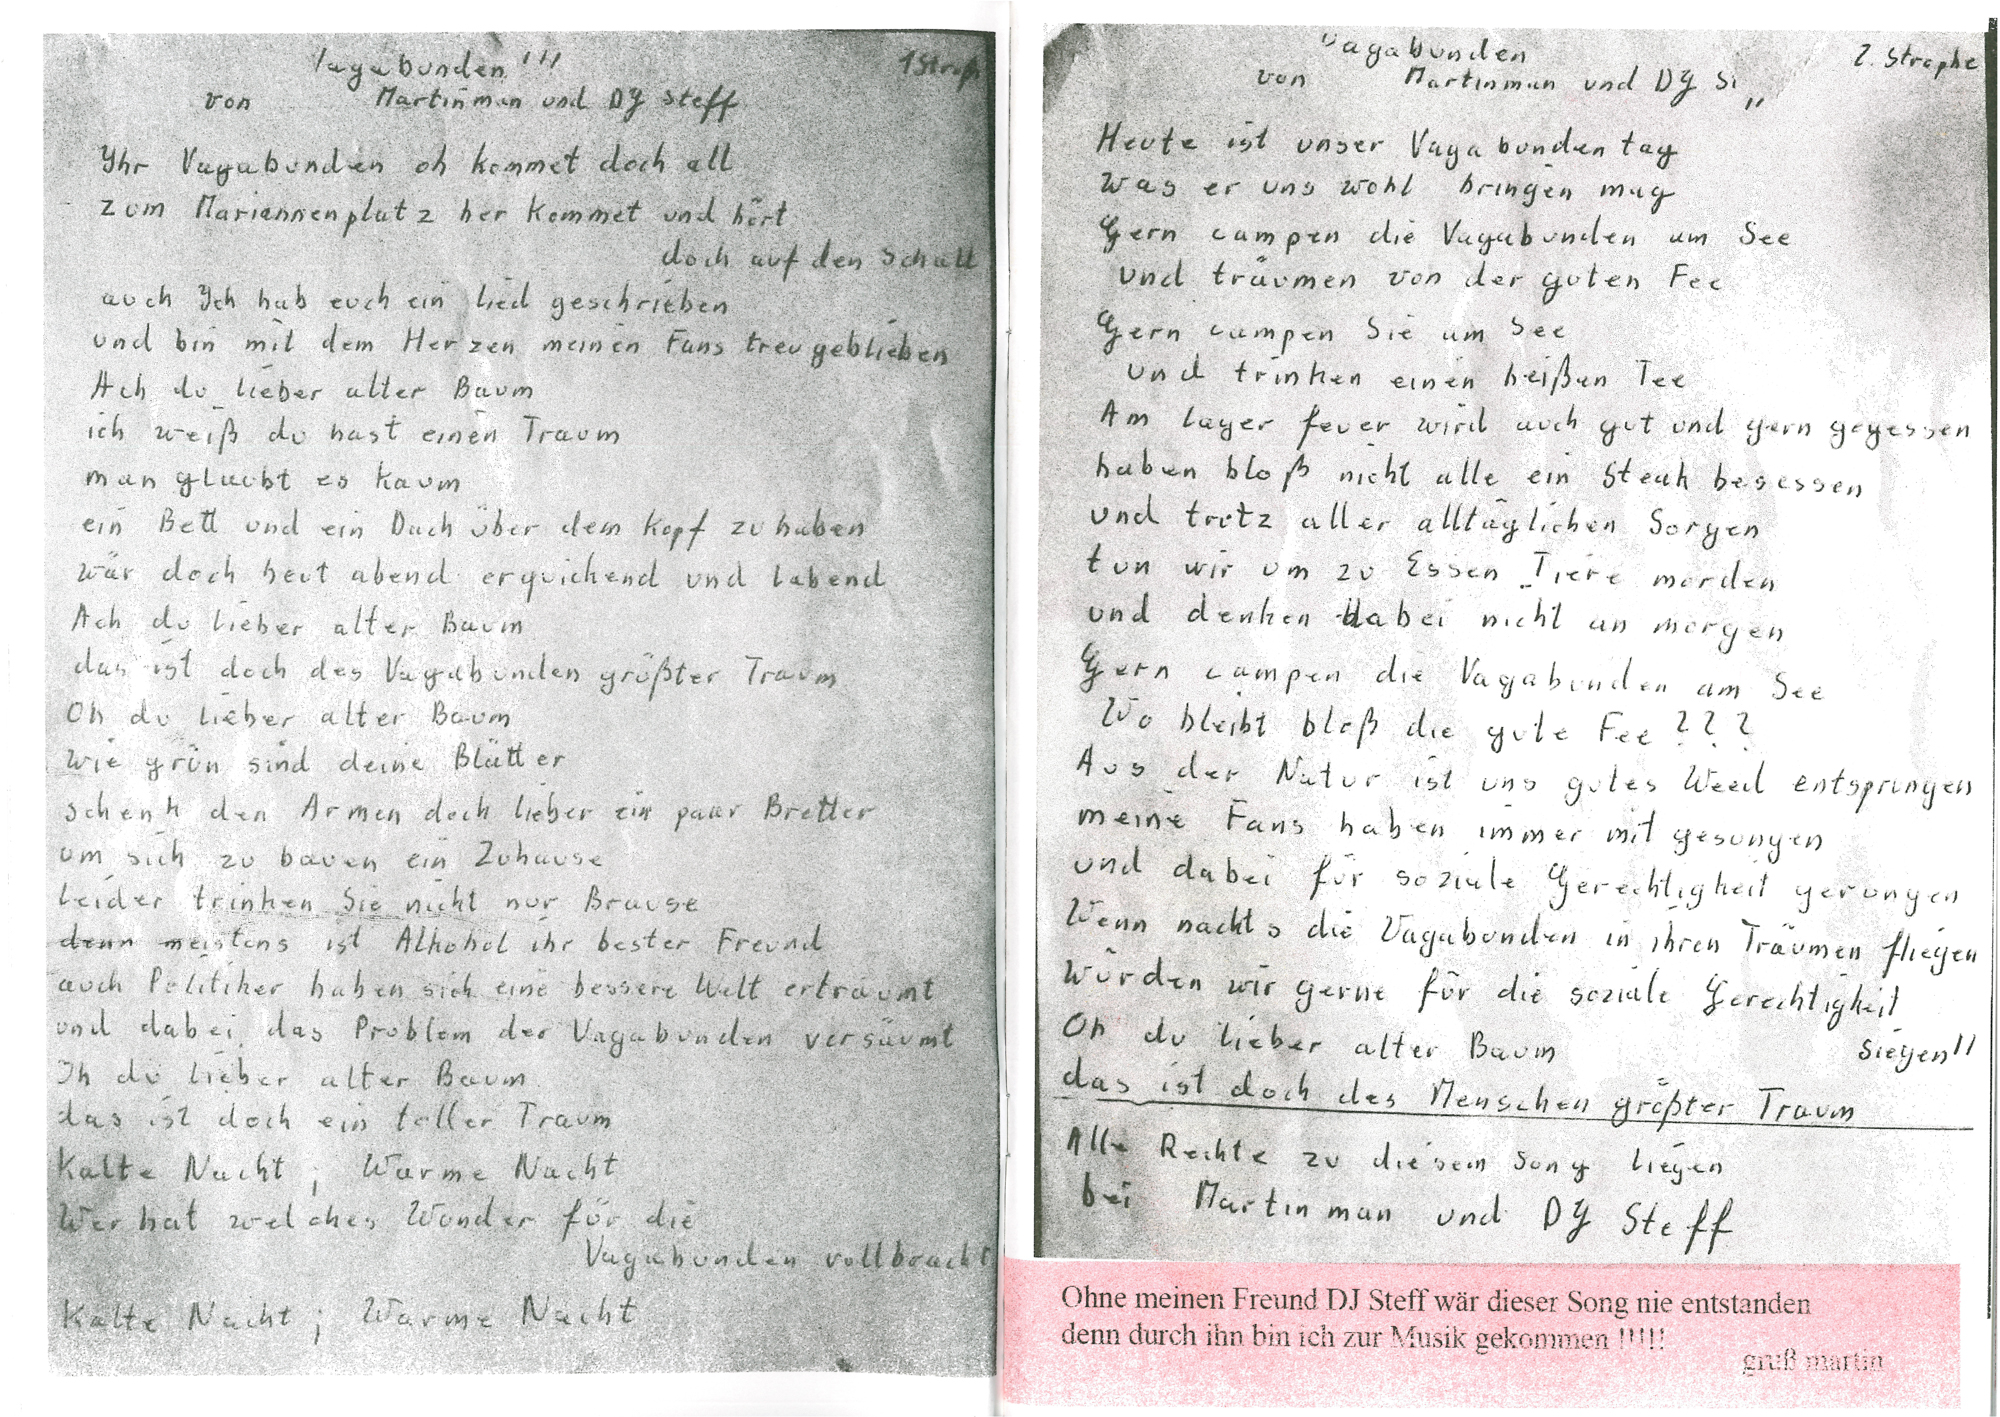 Vagabunden!!! 1 Stroph
von Martinman und DJ Steff
Ihr Vagabunden oh kommet doch all
zum Mariannenplatz her kommet und hört
doch auf den Schall
auch Ich hab euch ein lied geschrieben
und bin mit dem Herzen meinen Fans treu geblieben
Ach du lieber alter Baum
ich weiß du hast einen Traum
man glaubt es kaum
ein Bett und ein Dach über dem Kopf zu haben
wär doch heut abend erquickend und labend
Ach du lieber alter Baum
das ist doch des Vagabunden größter Traum
Oh du lieber alter Baum
wie grün sind deine Blätter
schenk den Armen doch lieber ein paar Bretter
um sich zu bauen ein Zuhause
leider trinken Sie nicht nur Brause
denn meistens ist Alkohol ihr bester Freund
auch Politiker haben sich eine bessere Welt erträumt
und dabei das Problem der Vagabunden versäumt
Oh du lieber alter Baum
das ist doch ein toller Traum
Kalte Nacht; Warme Nacht
Wer hat welches Wunder für die
Vagabunden vollbracht
Kalte Nacht; Warme Nacht
Vagabunden 2. Strophe
von Martinman und DJ St
Heute ist unser Vagabundentag
was er uns wohl bringen mag
Gern campen die Vagabunden am See
und träumen von der guten Fee
Gern campen Sie am See
und trinken einen heißen Tee
Am lager feuer wird auch gut und gern gegessen
haben bloß nicht alle ein Steak besessen
und trotz aller alltäglichen Sorgen
tun wir um zu Essen Tiere morden
und denken dabei nicht an morgen
Gern campen die Vagabunden am See
Wo bleibt bloß die gute Fee ???
Aus der Natur ist uns gutes Weed entsprungen
meine Fans haben immer mit gesungen
und dabei für soziale Gerechtigkeit gerungen
Wenn nachts die Vagabunden in ihren Träumen fliegen
würden wir gerne für die soziale Gerechtigkeit
siegen!!
Oh du lieber alter Baum
das ist doch des Menschen größter Traum
Alle Rechte zu diesem Song liegen
bei Martinman und DJ Steff
Ohne meinen Freund DJ Steff wär dieser Song nie entstanden
denn durch ihn bin ich zur Musik gekommen !!!!!
gruß martin